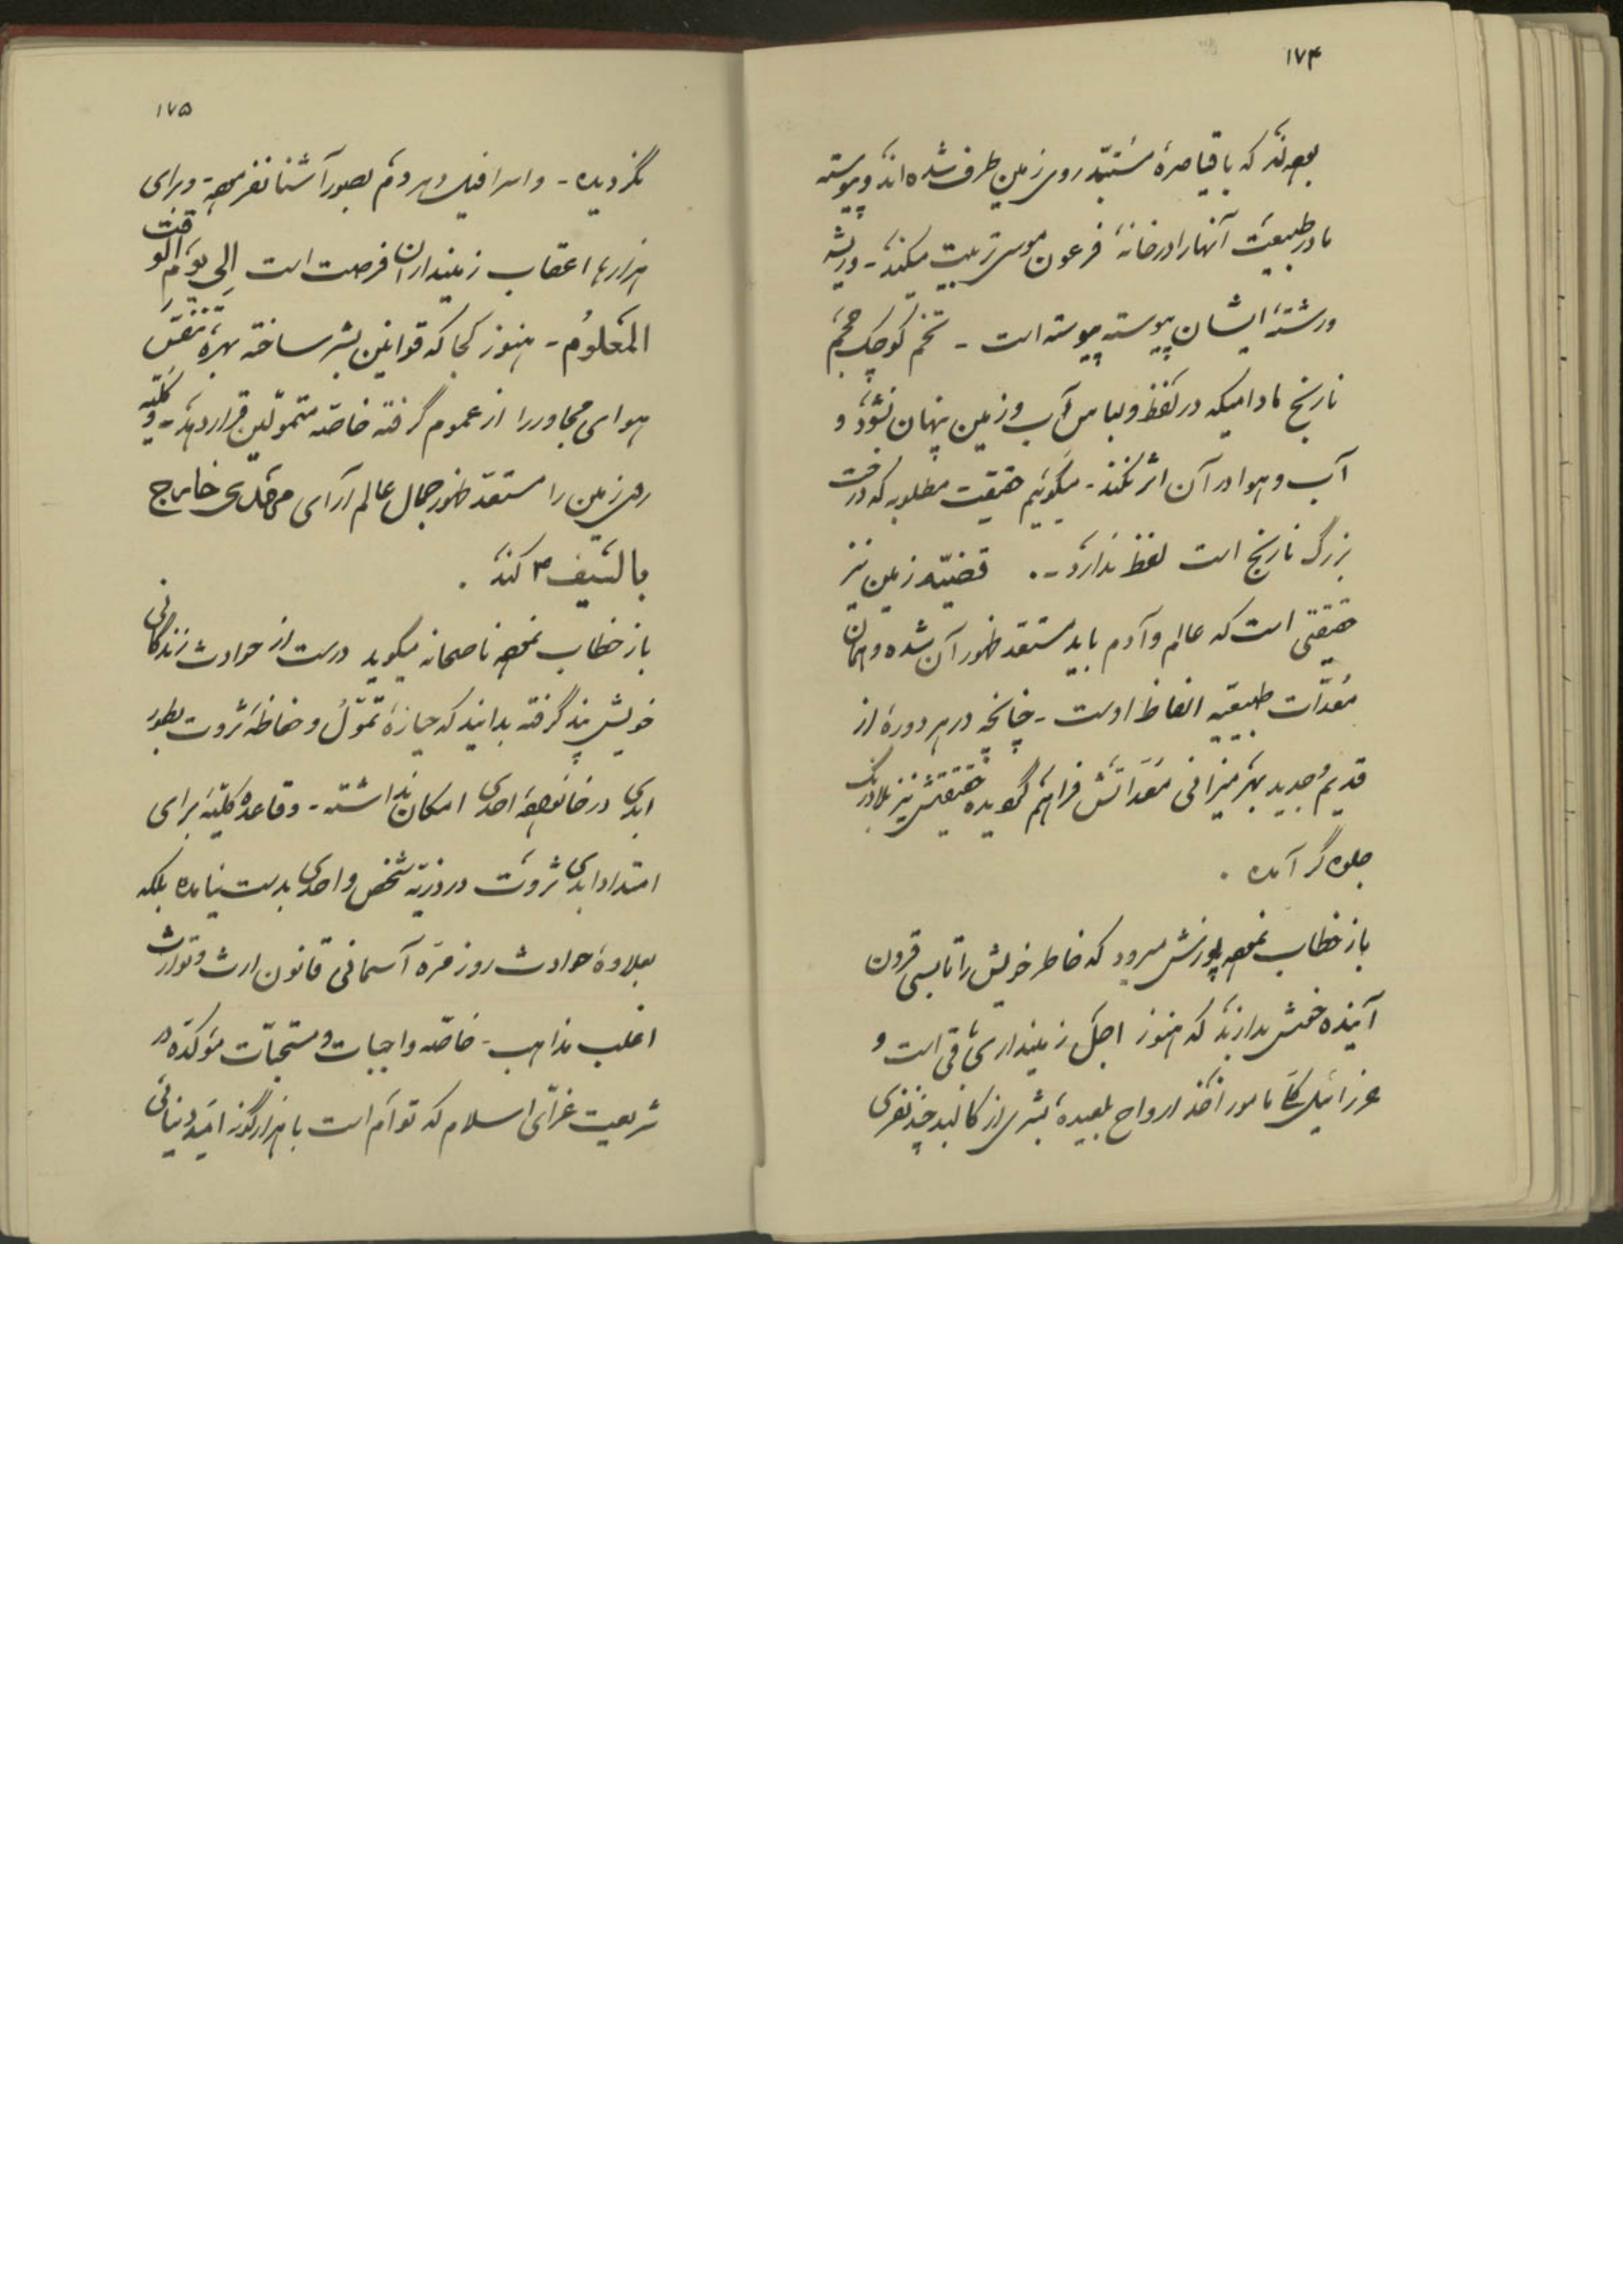 ۱۷۴
بوده‌اند که با قیاصرهٔ مستبد روی زمین طرف شده‌اند و پیوسته
مادر طبیعت آنها را در خانهٔ فرعون موسی تربیت میکند - و ریشه
و رشتهٔ ایشان پیوسته پیوسته است - تخم کوچک حجم
نارنج مادامیکه در لفظ و لباس آب و زمین پنهان نشود و
آب و هوا در آن اثر نکند - میگوئیم حقیقت مطلوبه که درخت
بزرگ نارنج است لفظ ندارد - . قضیّهٔ زمین نیز
حقیقتی است که عالم و آدم باید مستعد ظهور آن شده و همان
معدّات طبیعیّه الفاظ اوست - چنانچه در هر دورهٔ از
قدیم و جدید بهر میزانی معدّاتش فراهم گردیده حقیقتش نیز بلادرنگ
جلوه‌گر آمده .
باز خطاب نموده پوزش میرود که خاطر خویش را تا بسی قرون
آینده خوش بدارند که هنوز اجل زمینداری باقی است و
عزرائیل مأمور اخذ ارواح بشری از کالبد چند نفری
۱۷۵
نگردیده - و اسرافیل در صور آشنا نفرموده - و برای
هزارها اعقاب زمینداران فرصت است الی یوم الوقت
المعلوم - هنوز کجا که قوانین بشر ساخته بهرهٔ تنفس
هوای مجاور را از عموم گرفته خاصّه متموّلین قرار دهد - و کلّیه
روی زمین را مستعد ظهور جمال عالم آرای خارج
بالسّیف ۳ کند .
باز خطاب نموده ناصحانه میگوید درست از حوادث زندگانی
خویش پند گرفته بدانید که حیازهٔ تموّل و حفاظهٔ ثروت بطور
ابدی در خانوادهٔ احدی امکان نداشته - و قاعدهٔ کلّیه برای
امتداد ابدی ثروت در ذریّه شخص واحدی بدست نیامده بلکه
بعلاوهٔ حوادث روزمرّه آسمانی قانون ارث و توارث
اغلب مذاهب - خاصّه واجبات و مستحبّات مؤکّده در
شریعت غرّای اسلام که توأم است با هزارگونه امید دنیائی